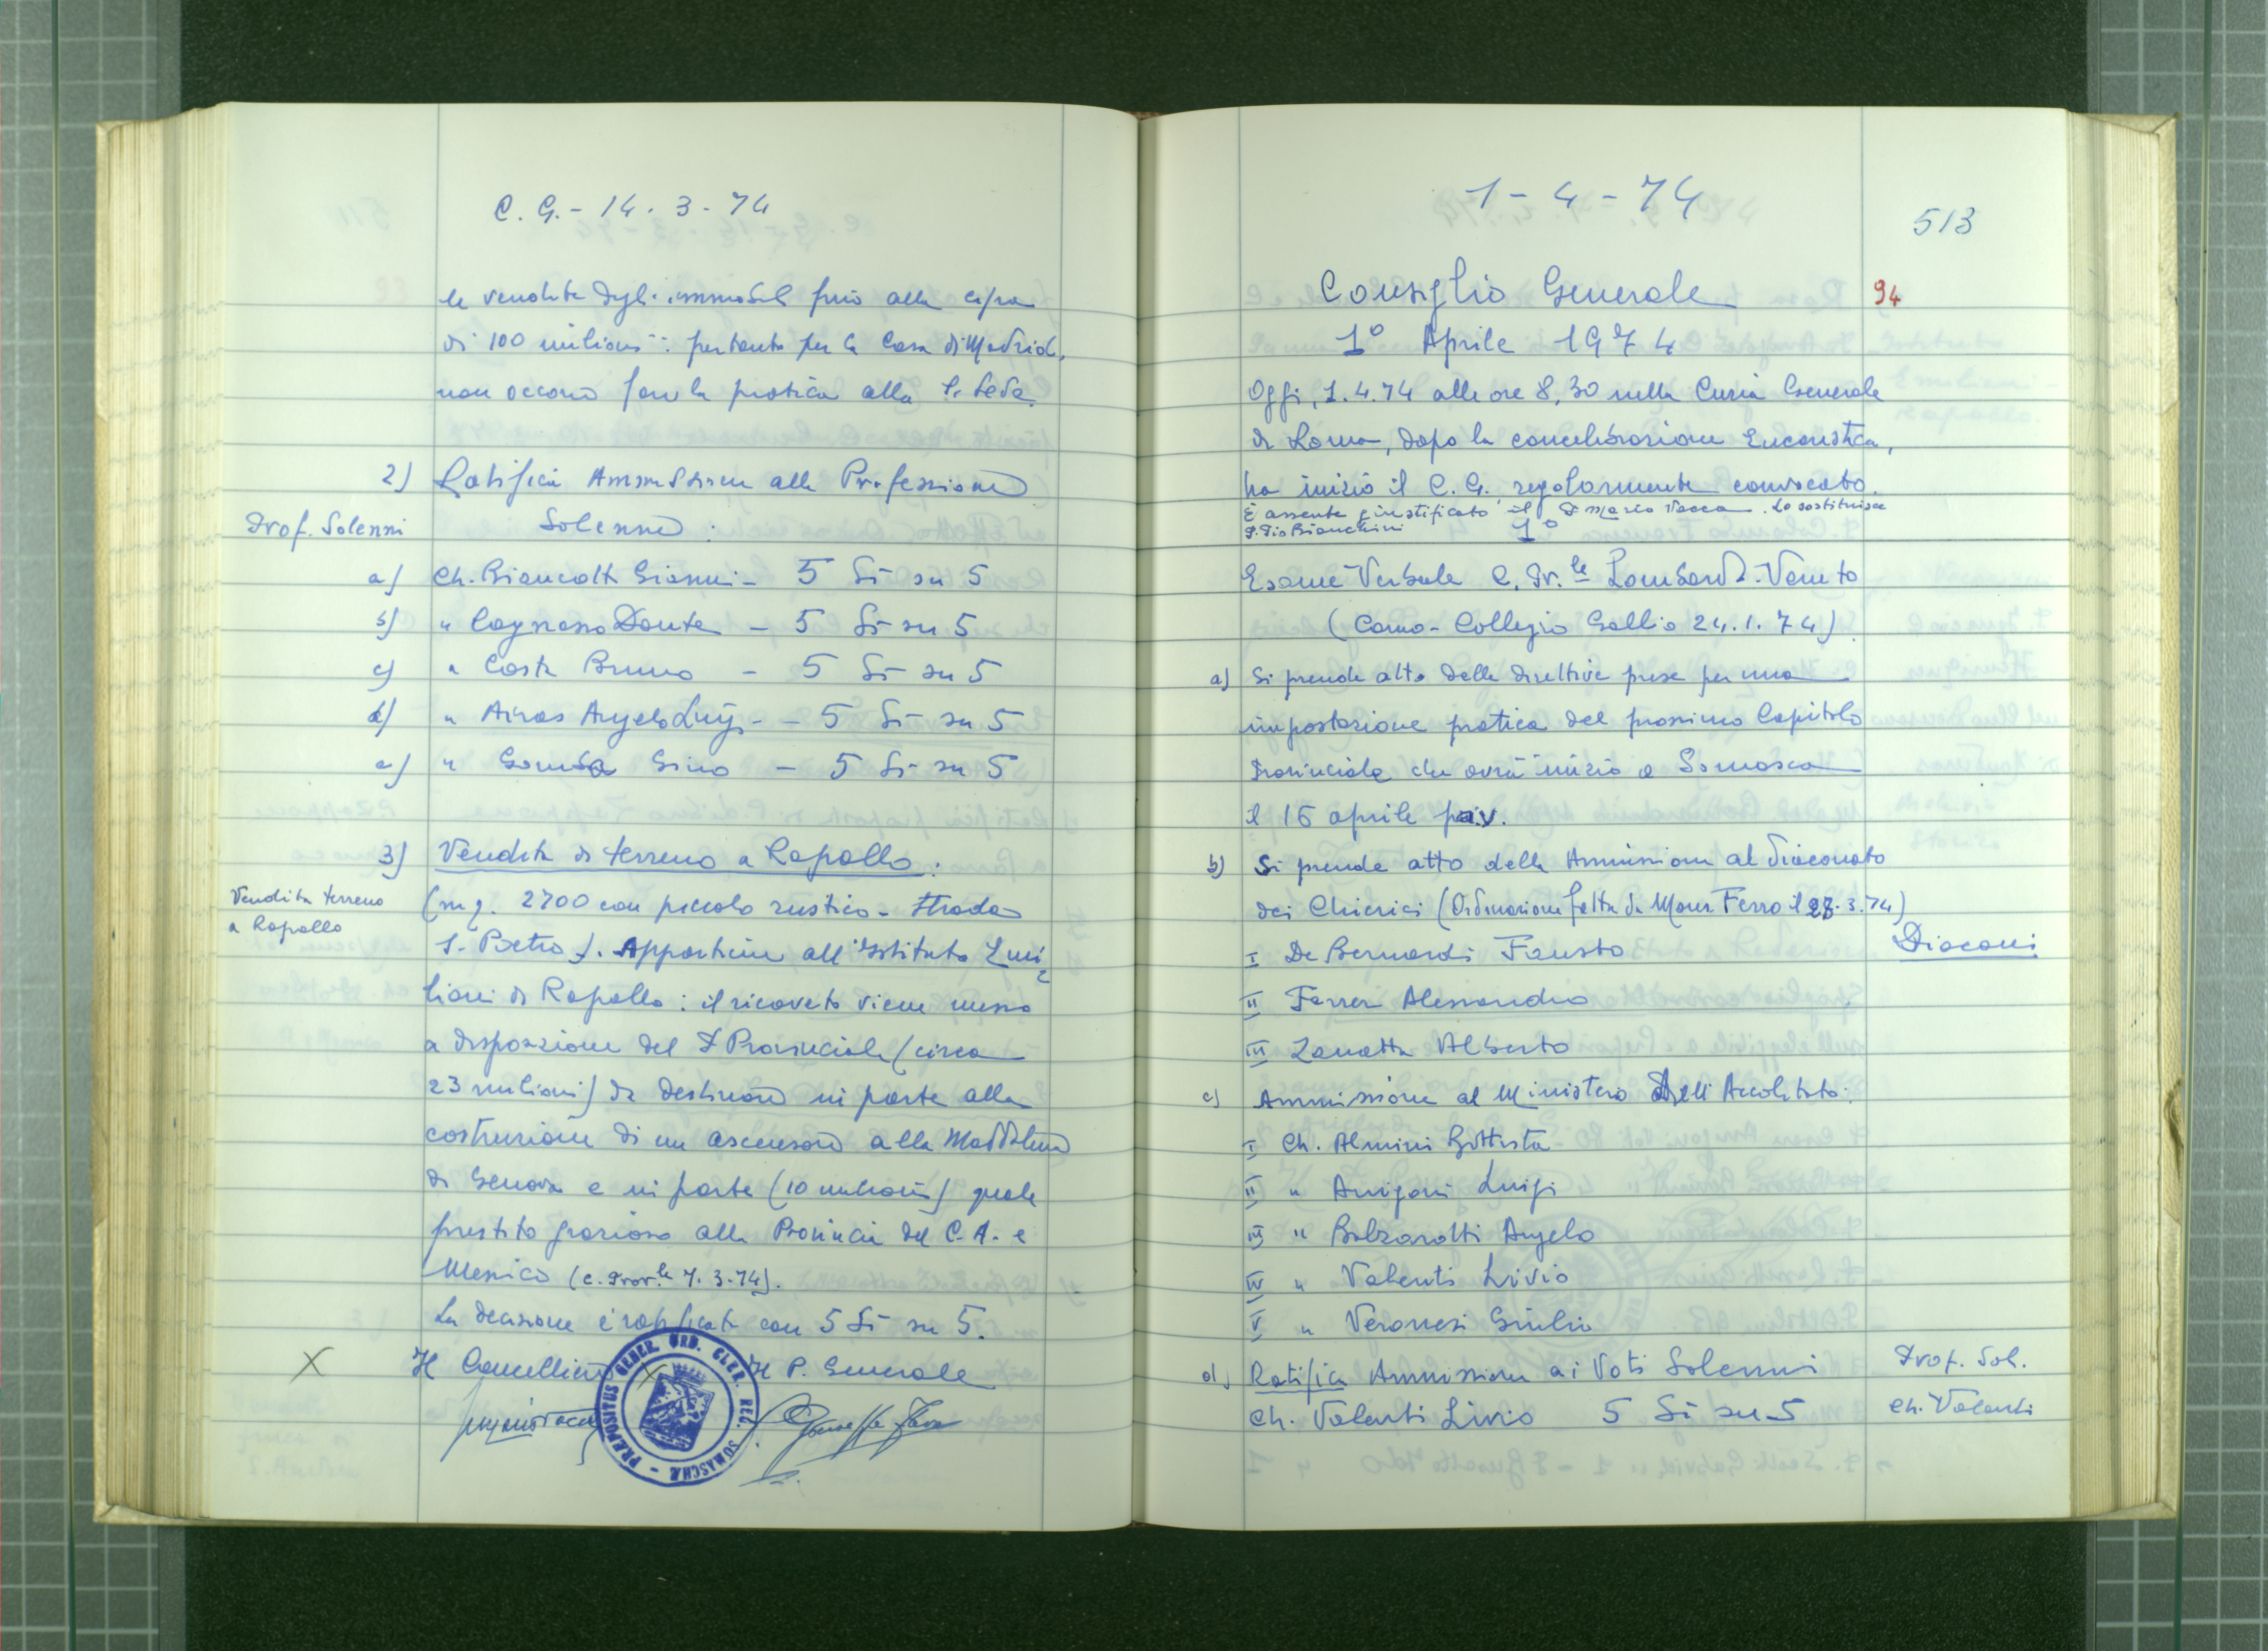 C. G. - 14. 3 - 74
le vendite degli immobili fino alla cifra
di 100 milioni: pertanto per la Casa di Madrid,
non occorre fare la pratica alla S. Sede.
2) Ratifica Ammissione alla Professione
Prof. Solenni
Solenne:
a) Ch. Biancolti Gianni - 5 Sì su 5
b) " Cagnasso Dante - 5 Sì su 5
c) " Costa Bruno - 5 Sì su 5
d) " Airas Angelo Luigi - - 5 Sì su 5
e) " Gomba Gino - 5 Sì su 5
3) Vendita di terreno a Rapallo:
Vendita terreno
a Rapallo
(mq. 2700 con piccolo rustico - Strada
S. Pietro). Appartiene all'Istituto Emi
liani di Rapallo: il ricavato viene messo
a disposizione del P Provinciale (circa
23 milioni) da destinare in parte alla
costruzione di un ascensore alla Maddalena
di Genova e in parte (10 milioni) quale
prestito grazioso alla Provincia del C.A. e
Messico (C. Prov.le 7. 3. 74).
La decisione è ratificata con 5 Sì su 5.
X Il Cancelliere X Il P. Generale
PRAEPOSITUS GENER. ORD. CLER. REG. SOMASCHÆ -
1 - 4 - 74
513
Consiglio Generale
94
1° Aprile 1974
Oggi, 1.4.74 alle ore 8,30 nella Curia Generale
di Roma, dopo la concelebrazione Eucaristica,
ha inizio il C. G. regolarmente convocato.
È assente giustificato il P Mario Vacca. Lo sostituisce
P. Pio Bianchini
1°
Esame Verbale C. Pr.le Lombardo-Veneto
(Como - Collegio Gallio 24.1.74).
a) Si prende atto delle direttive prese per una
impostazione pratica del prossimo Capitolo
Provinciale che avrà inizio a Somasca
il 16 aprile p.v.
b) Si prende atto della Ammissione al Diaconato
dei Chierici (Ordinazione fatta da Mons. Ferro il 28. 3.74)
Diaconi
I De Bernardi Fausto
II Ferrer Alessandro
III Zanatta Alberto
c) Ammissione al Ministero dell'Accolitato:
I Ch. Almini Battista
II " Arrigoni Luigi
III " Bolzarotti Angelo
IV " Valenti Livio
V " Veronesi Giulio
d) Ratifica Ammissione ai Voti Solenni
Prof. Sol.
Ch. Valenti Livio 5 Sì su 5
Ch. Valenti